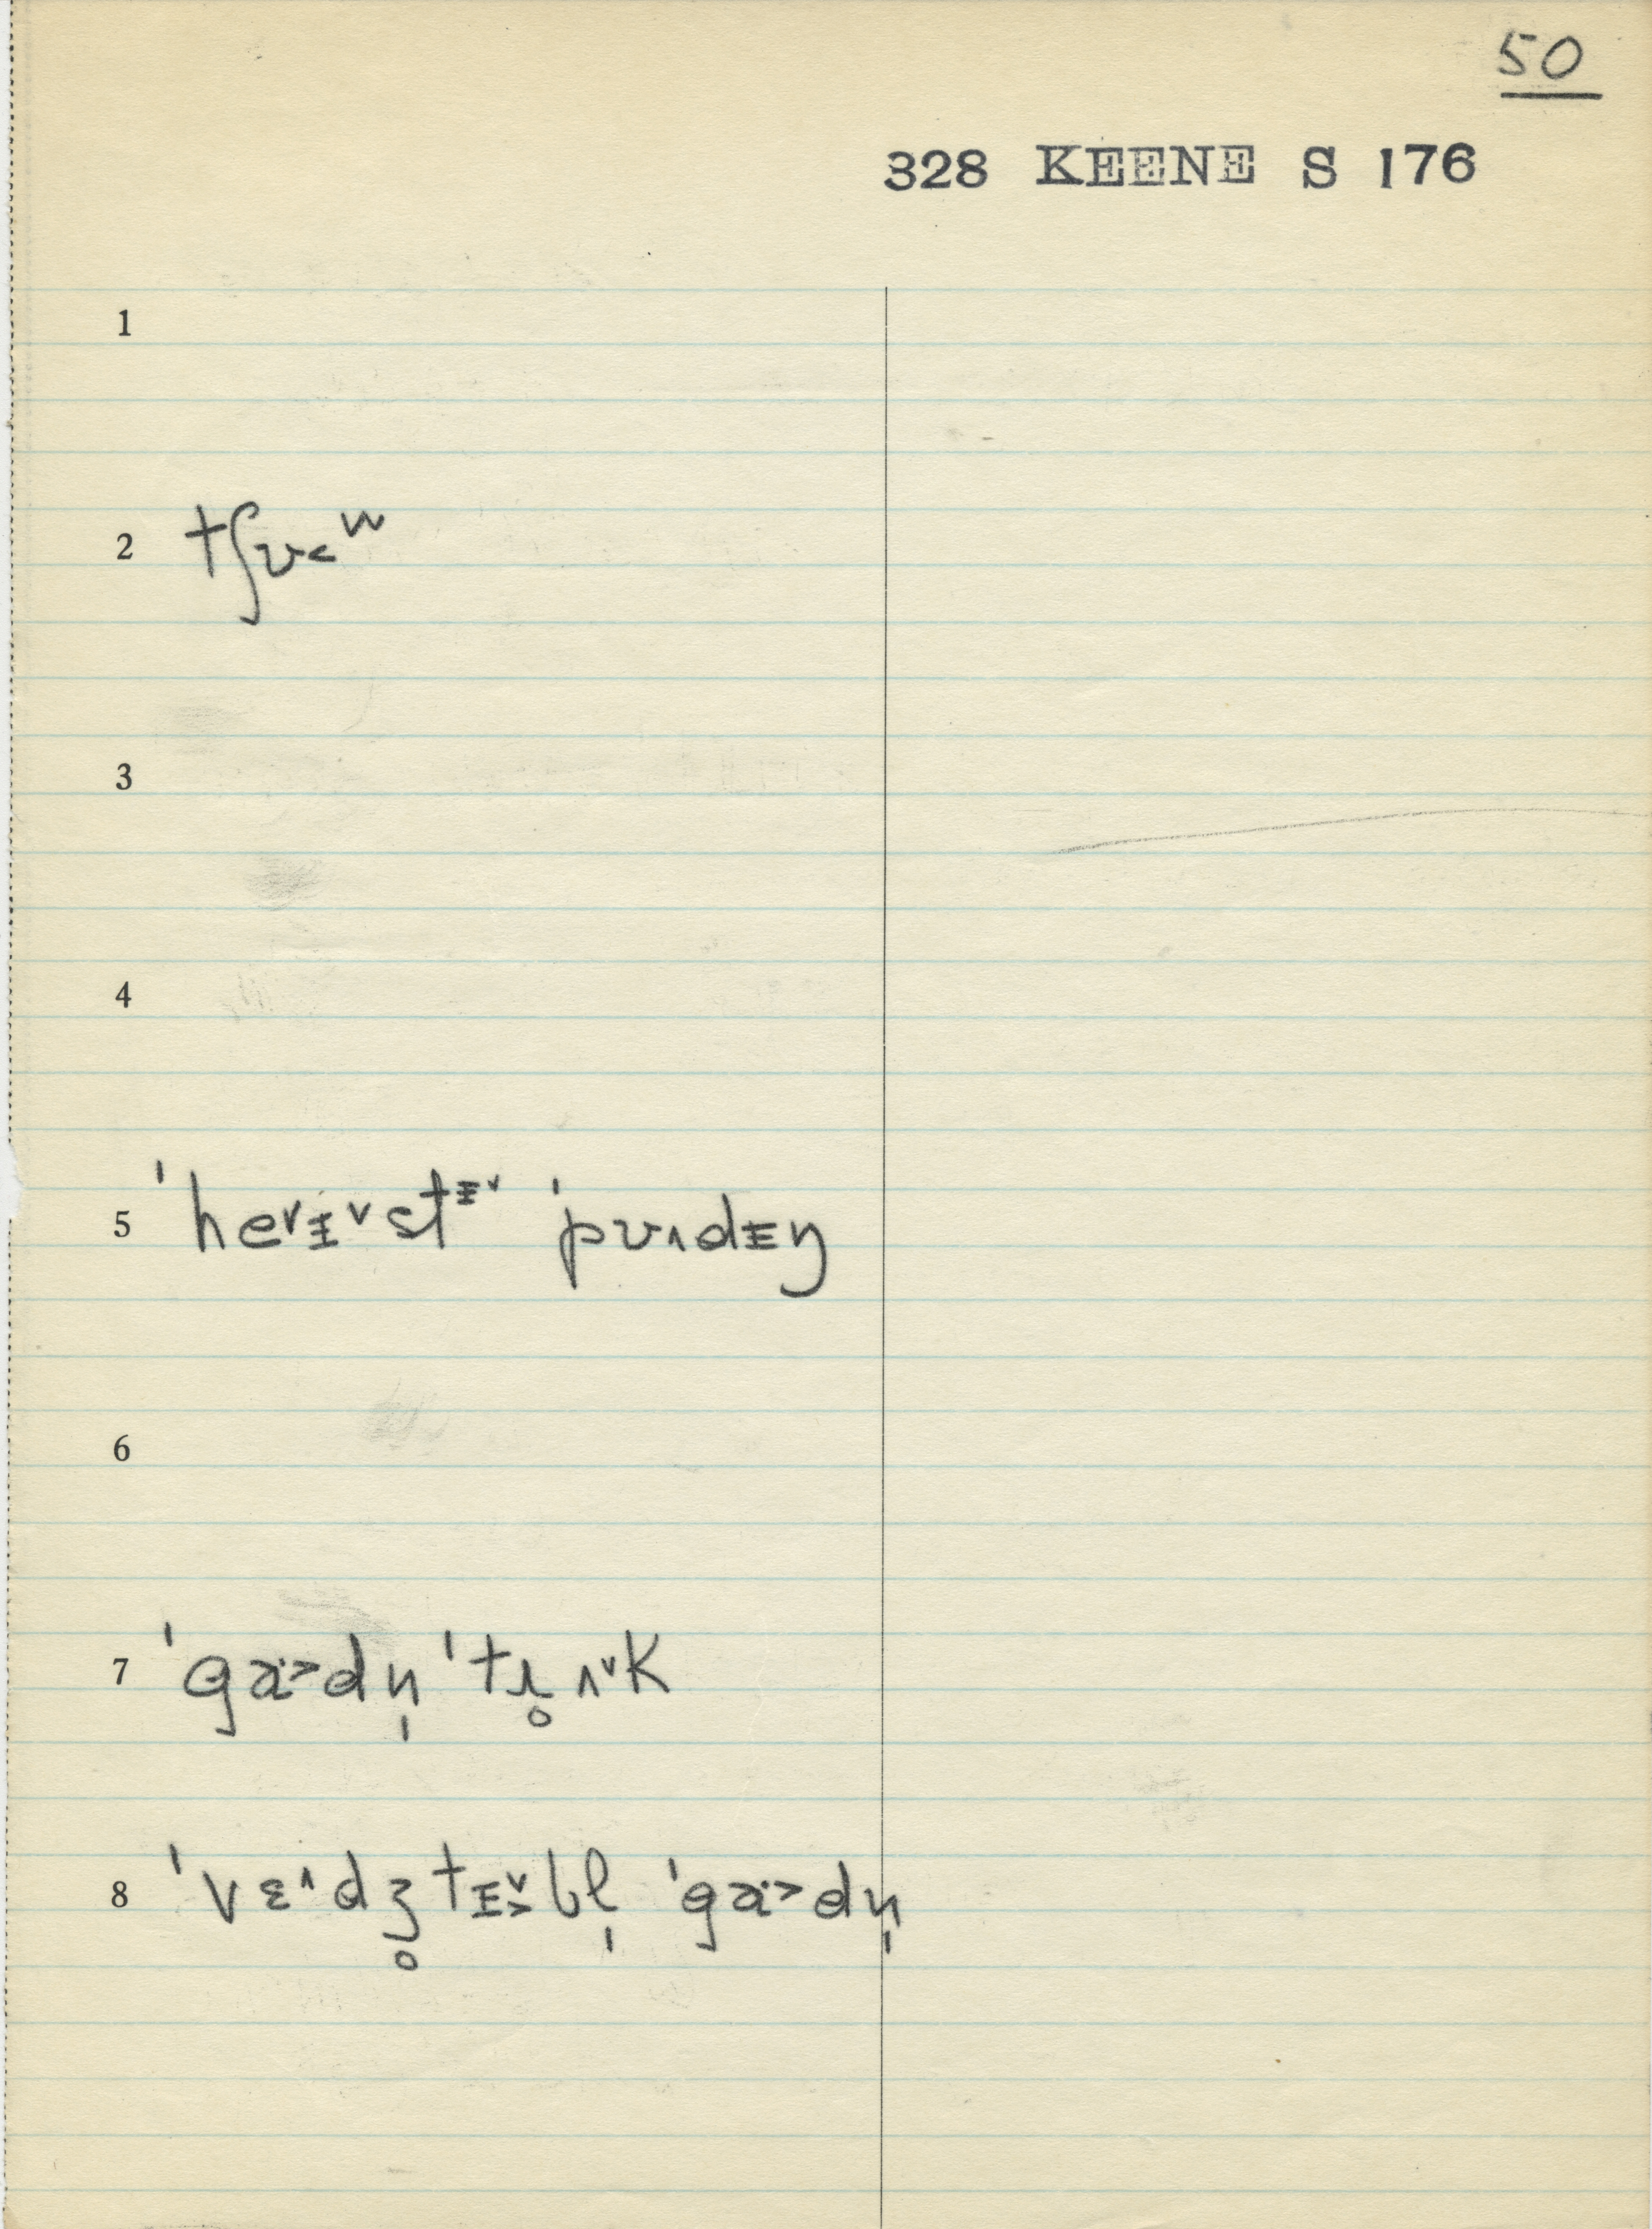 50
328 KEENE S 176
1
2 tʃʊ˂ʷ
3
4
5 ˈhe˅ɪ˅stɪ˅ ˈpʊ˄dɪŋ
6
7 ˈga˃dn̩ ˈtɹ̥ʌ˅k
8 ˈvɛ˄dʒ̥tɪ˅˃bl̩ ˈga˃dn̩